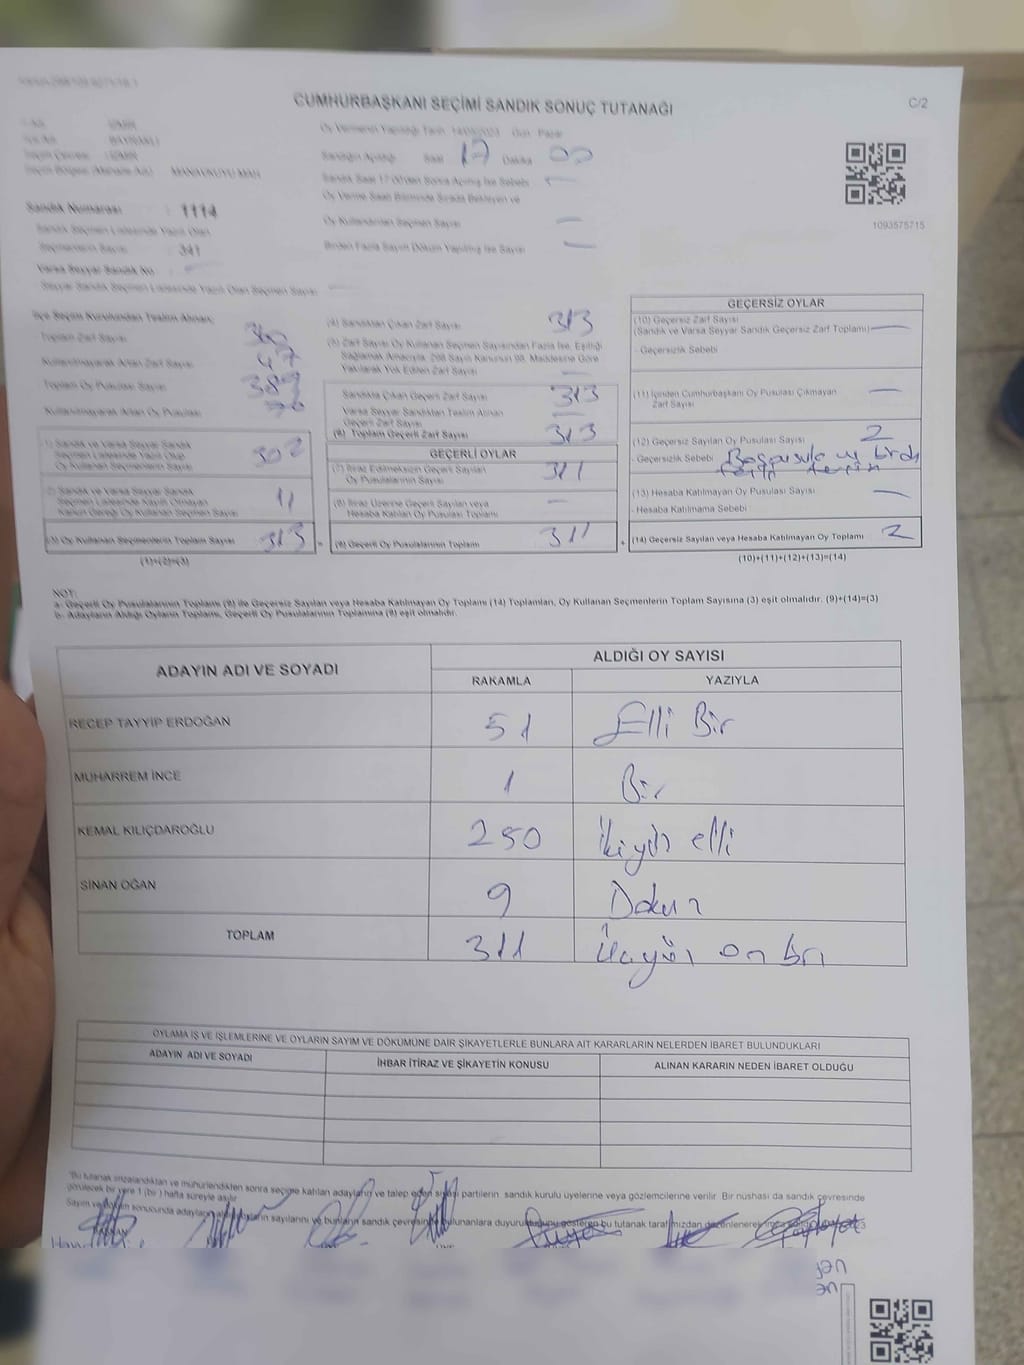 CUMHURBAŞKANI SEÇİMİ SANDIK SONUÇ TUTANAĞI
C/2
Oy Vermenin Yapıldığı Tarih 14/05/2023 Gün Pazar
İZMİR
BAYRAKLI
Sandığın Açıldığı Saat 17 Dakika 00
Sandık Saat 17:00'den Sonra Açılmış İse Sebebi
Seçim Bölgesi (Mahalle Adı) MANAVKUYU MAH.
Oy Verme Saati Bitiminde Sırada Bekleyen ve
Oy Kullandırılan Seçmen Sayısı
Birden Fazla Sayım Döküm Yapılmış İse Sayısı
1093575715
Sandık Numarası : 1114
Sandık Seçmen Listesinde Yazılı Olan
Seçmenlerin Sayısı : 341
Varsa Seyyar Sandık No
Seyyar Sandık Seçmen Listesinde Yazılı Olan Seçmen Sayısı
İlçe Seçim Kurulundan Teslim Alınan;
Toplam Zarf Sayısı 360
Kullanılmayarak Artan Zarf Sayısı 47
Toplam Oy Pusulası Sayısı 389
Kullanılmayarak Artan Oy Pusulası 76
(1) Sandık ve Varsa Seyyar Sandık
Seçmen Listesinde Yazılı Olup
Oy Kullanan Seçmenlerin Sayısı 302
(2) Sandık ve Varsa Seyyar Sandık
Seçmen Listesinde Kayıtlı Olmayan
Kanun Gereği Oy Kullanan Seçmen Sayısı 11
(3) Oy Kullanan Seçmenlerin Toplam Sayısı 313
(1)+(2)=(3)
(4) Sandıktan Çıkan Zarf Sayısı 313
(5) Zarf Sayısı Oy Kullanan Seçmen Sayısından Fazla İse, Eşitliği
Sağlamak Amacıyla, 298 Sayılı Kanunun 98. Maddesine Göre
Yakılarak Yok Edilen Zarf Sayısı
Sandıkta Çıkan Geçerli Zarf Sayısı 313
Varsa Seyyar Sandıktan Teslim Alınan
Geçerli Zarf Sayısı
(6) Toplam Geçerli Zarf Sayısı 313
GEÇERLİ OYLAR
(7) İtiraz Edilmeksizin Geçerli Sayılan
Oy Pusulalarının Sayısı 311
(8) İtiraz Üzerine Geçerli Sayılan veya
Hesaba Katılan Oy Pusulası Toplamı
(9) Geçerli Oy Pusulalarının Toplamı 311
GEÇERSİZ OYLAR
(10) Geçersiz Zarf Sayısı
(Sandık ve Varsa Seyyar Sandık Geçersiz Zarf Toplamı)
- Geçersizlik Sebebi
(11) İçinden Cumhurbaşkanı Oy Pusulası Çıkmayan
Zarf Sayısı
(12) Geçersiz Sayılan Oy Pusulası Sayısı 2
- Geçersizlik Sebebi
(13) Hesaba Katılmayan Oy Pusulası Sayısı
- Hesaba Katılmama Sebebi
(14) Geçersiz Sayılan veya Hesaba Katılmayan Oy Toplamı 2
(10)+(11)+(12)+(13)=(14)
NOT:
a- Geçerli Oy Pusulalarının Toplamı (9) ile Geçersiz Sayılan veya Hesaba Katılmayan Oy Toplamı (14) Toplamları, Oy Kullanan Seçmenlerin Toplam Sayısına (3) eşit olmalıdır. (9)+(14)=(3)
b- Adayların Aldığı Oyların Toplamı, Geçerli Oy Pusulalarının Toplamına (9) eşit olmalıdır.
ADAYIN ADI VE SOYADI ALDIĞI OY SAYISI
RAKAMLA YAZIYLA
RECEP TAYYİP ERDOĞAN 51 Elli Bir
MUHARREM İNCE 1 Bir
KEMAL KILIÇDAROĞLU 250 İkiyüz elli
SİNAN OĞAN 9 Dokuz
TOPLAM 311 Üçyüz on bir
OYLAMA İŞ VE İŞLEMLERİNE VE OYLARIN SAYIM VE DÖKÜMÜNE DAİR ŞİKAYETLERLE BUNLARA AİT KARARLARIN NELERDEN İBARET BULUNDUKLARI
ADAYIN ADI VE SOYADI İHBAR İTİRAZ VE ŞİKAYETİN KONUSU ALINAN KARARIN NEDEN İBARET OLDUĞU
*Bu tutanak imzalandıktan ve mühürlendikten sonra seçime katılan adayların ve talep eden siyasi partilerin sandık kurulu üyelerine veya gözlemcilerine verilir. Bir nüshası da sandık çevresinde
görülecek bir yere 1 (bir) hafta süreyle asılır.
Sayım ve döküm sonucunda adayların aldığı oyların sayılarını ve bunların sandık çevresinde bulunanlara duyurulduğunu gösteren bu tutanak tarafımızdan düzenlenerek